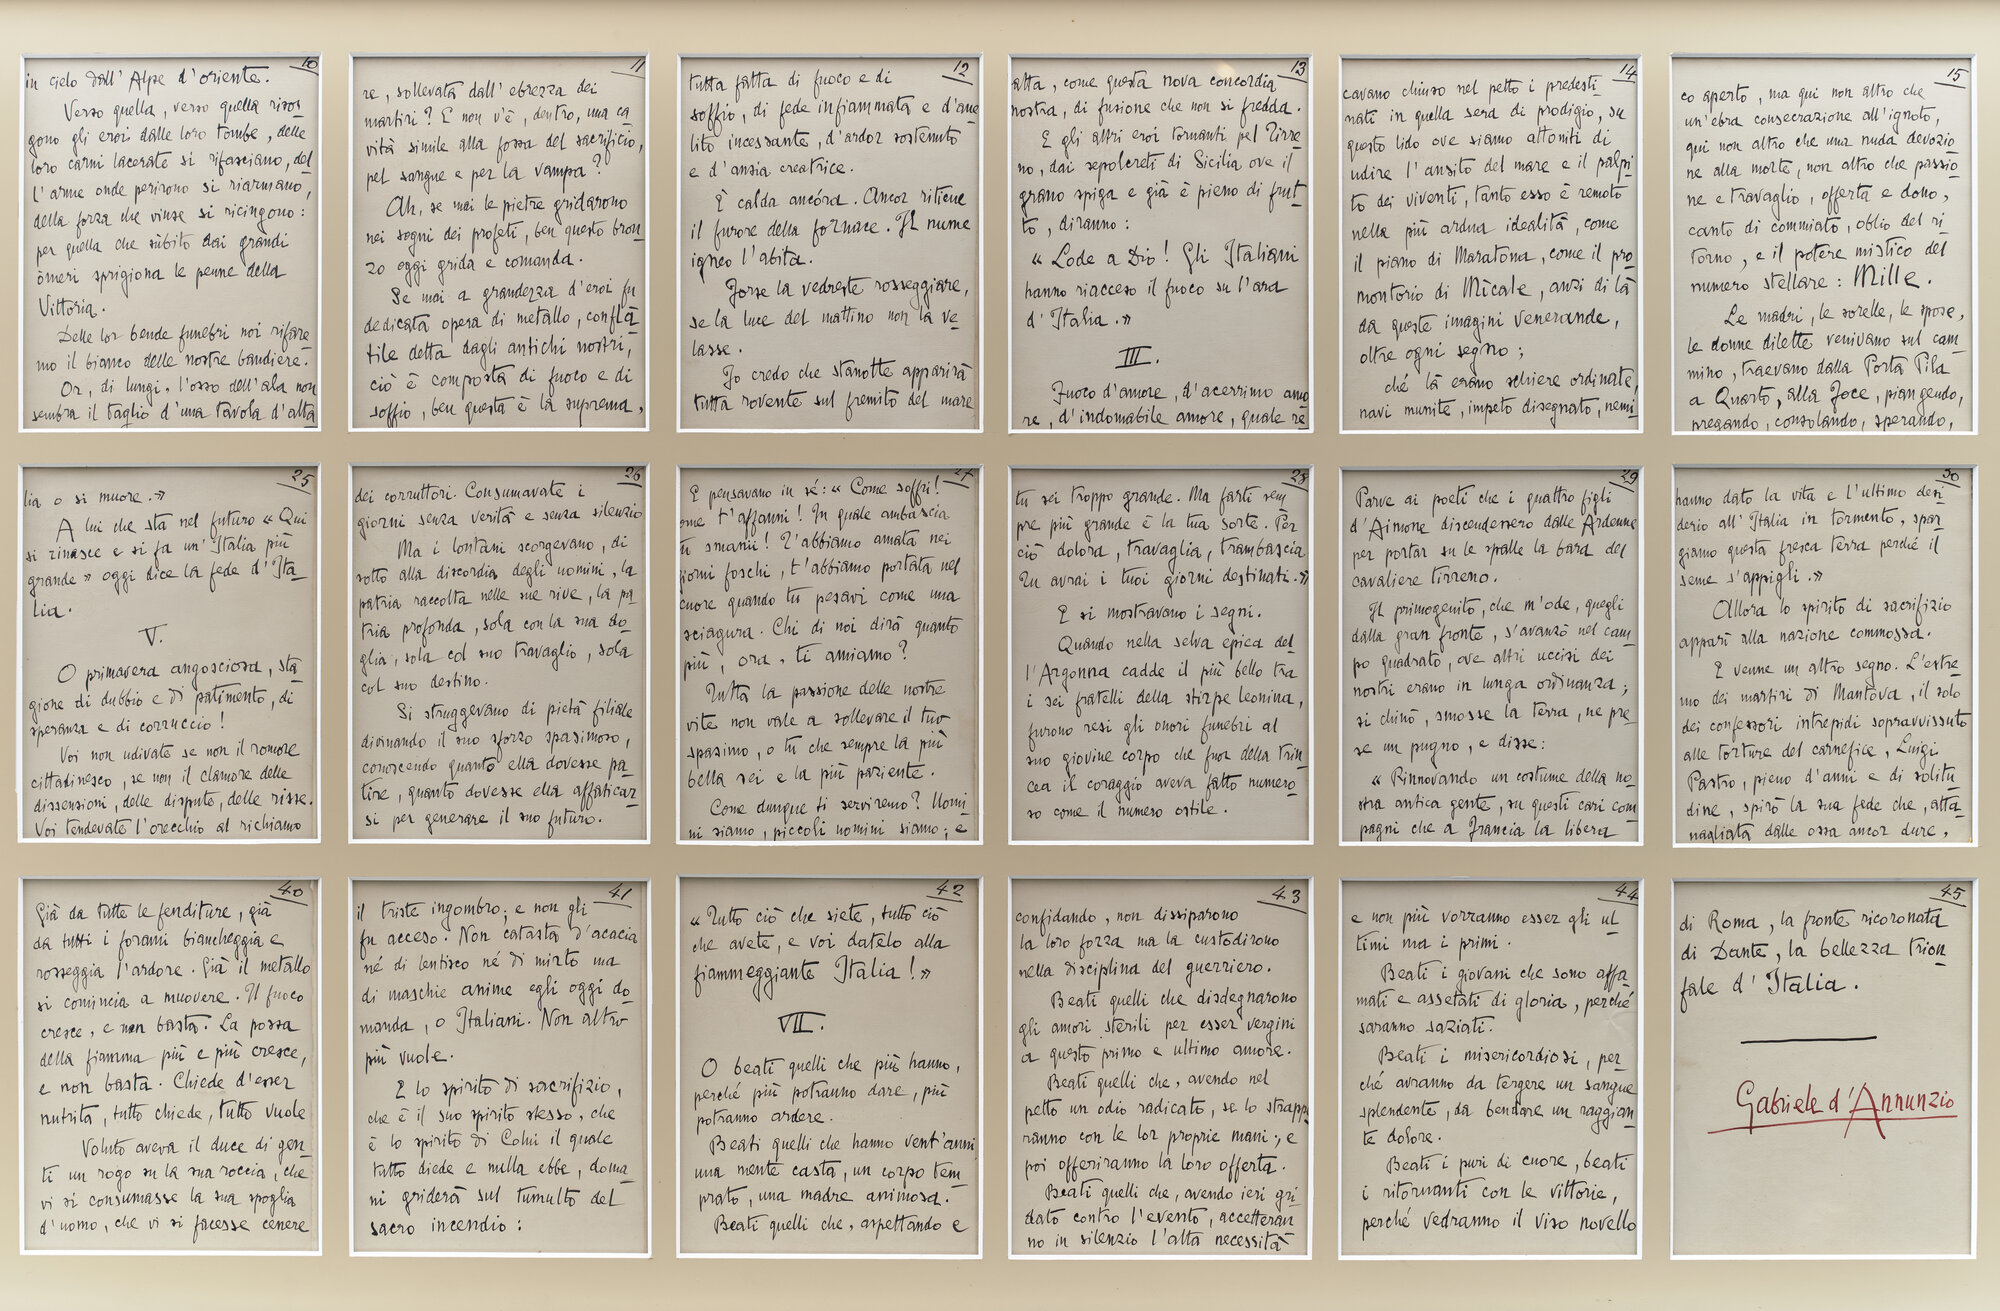 10
in cielo dall'Alpe d'oriente.
Verso quella, verso quella risor
gono gli eroi dalle loro tombe, delle
loro carni lacerate si rifasciano, del
l'arme onde perirono si riarmano,
della forza che vinse si ricingono:
per quella che sùbito dai grandi
òmeri sprigiona le penne della
Vittoria.
Delle lor bende funebri noi rifare
mo il bianco delle nostre bandiere.
Or, di lungi, l'osso dell'ala non
sembra il taglio d'una tavola d'alta
11
re, sollevata dall'ebrezza dei
martiri? E non v'è, dentro, una ca
vità simile alla fossa del sacrificio,
pel sangue e per la vampa?
Ah, se mai le pietre gridarono
nei sogni dei profeti, ben questo bron
zo oggi grida e comanda.
Se mai a grandezza d'eroi fu
dedicata opera di metallo, conflà
tile detta dagli antichi nostri,
ciò è composta di fuoco e di
soffio, ben questa è la suprema,
12
tutta fatta di fuoco e di
soffio, di fede infiammata e d'ane
lito incessante, d'ardor sostenuto
e d'ansia creatrice.
È calda ancóra. Ancor ritiene
il furore della fornace. Il nume
igneo l'abita.
Forse la vedreste rosseggiare,
se la luce del mattino non la ve
lasse.
Io credo che stanotte apparirà
tutta rovente sul fremito del mare
13
atta, come questa nova concordia
nostra, di fusione che non si fredda.
E gli altri eroi tornanti pel Tirre
no, dai sepolcreti di Sicilia ove il
grano spiga e già è pieno di frut
to, diranno:
« Lode a Dio! Gli Italiani
hanno riacceso il fuoco su l'ara
d'Italia. »
III.
Fuoco d'amore, d'acerrimo amo
re, d'indomabile amore, quale re
14
cavano chiuso nel petto i predesti
nati in quella sera di prodigio, su
questo lido ove siamo attoniti di
udire l'ansito del mare e il palpi
to dei viventi, tanto esso è remoto
nella più ardua idealità, come
il piano di Maratona, come il pro
montorio di Mìcale, anzi di là
da queste imagini venerande,
oltre ogni segno;
ché là erano schiere ordinate,
navi munite, impeto disegnato, nemi
15
co aperto, ma qui non altro che
un'ebra consecrazione all'ignoto,
qui non altro che una nuda devozio
ne alla morte, non altro che passio
ne e travaglio, offerta e dono,
canto di commiato, oblìo del ri
torno, e il potere mistico del
numero stellare: Mille.
Le madri, le sorelle, le spose,
le donne dilette venivano sul cam
mino, traevano dalla Porta Pila
a Quarto, alla Foce, piangendo,
pregando, consolando, sperando,
25
lia o si muore. »
A lui che sta nel futuro « Qui
si rinasce e si fa un'Italia più
grande » oggi dice la fede d'Ita
lia.
V.
O primavera angosciosa, sta
gione di dubbio e di patimento, di
speranza e di corruccio!
Voi non udivate se non il romore
cittadinesco, se non il clamore delle
dissensioni, delle dispute, delle risse.
Voi tendevate l'orecchio al richiamo
26
dei corruttori. Consumavate i
giorni senza verità e senza silenzio
Ma i lontani scorgevano, di
sotto alla discordia degli uomini, la
patria raccolta nelle sue rive, la pa
tria profonda, sola con la sua do
glia, sola col suo travaglio, sola
col suo destino.
Si struggevano di pietà filiale
divinando il suo sforzo spasimoso,
conoscendo quanto ella dovesse pa
tire, quanto dovesse ella affaticar
si per generare il suo futuro.
27
E pensavano in sé: « Come soffri!
ome t'affanni! In quale ambascia
tu smanii! T'abbiamo amata nei
giorni foschi, t'abbiamo portata nel
cuore quando tu pesavi come una
sciagura. Chi di noi dirà quanto
più, ora, ti amiamo?
Tutta la passione delle nostre
vite non vale a sollevare il tuo
spasimo, o tu che sempre la più
bella sei e la più paziente.
Come dunque ti serviremo? Uomi
ni siamo, piccoli uomini siamo; e
28
tu sei troppo grande. Ma farti sem
pre più grande è la tua sorte. Per
ciò dolora, travaglia, trambascia
Tu avrai i tuoi giorni destinati. »
E si mostravano i segni.
Quando nella selva epica del
l'Argonna cadde il più bello tra
i sei fratelli della stirpe leonina,
furono resi gli onori funebri al
suo giovine corpo che fuor della trin
cea il coraggio aveva fatto numero
so come il numero ostile.
29
Parve ai poeti che i quattro figli
d'Aimone discendessero dalle Ardenne
per portar su le spalle la bara del
cavaliere tirreno.
Il primogenito, che m'ode, quegli
dalla gran fronte, s'avanzò nel cam
po quadrato, ove altri uccisi dei
nostri erano in lunga ordinanza;
si chinò, smosse la terra, ne pre
se un pugno, e disse:
« Rinnovando un costume della no
stra antica gente, su questi cari com
pagni che a Francia la libera
30
hanno dato la vita e l'ultimo desi
derio all'Italia in tormento, spar
giamo questa fresca terra perché il
seme s'appigli. »
Allora lo spirito di sacrifizio
apparì alla nazione commossa.
E venne un altro segno. L'estre
mo dei martiri di Mantova, il solo
dei confessori intrepidi sopravvissuto
alle torture del carnefice, Luigi
Pastro, pieno d'anni e di solitu
dine, spirò la sua fede che, atta
nagliata dalle ossa ancor dure,
40
Già da tutte le fenditure, già
da tutti i forami biancheggia e
rosseggia l'ardore. Già il metallo
si comincia a muovere. Il fuoco
cresce, e non basta. La possa
della fiamma più e più cresce,
e non basta. Chiede d'esser
nutrita, tutto chiede, tutto vuole
Voluto aveva il duce di gen
ti un rogo su la sua roccia, che
vi si consumasse la sua spoglia
d'uomo, che vi si facesse cenere
41
il triste ingombro; e non gli
fu acceso. Non catasta d'acacia
né di lentisco né di mirto ma
di maschie anime egli oggi do
manda, o Italiani. Non altro
più vuole.
E lo spirito di sacrifizio,
che è il suo spirito stesso, che
è lo spirito di Colui il quale
tutto diede e nulla ebbe, doma
ni griderà sul tumulto del
sacro incendio:
42
« Tutto ciò che siete, tutto ciò
che avete, e voi datelo alla
fiammeggiante Italia! »
VII.
O beati quelli che più hanno,
perché più potranno dare, più
potranno ardere.
Beati quelli che hanno vent'anni
una mente casta, un corpo tem
prato, una madre animosa.
Beati quelli che, aspettando e
43
confidando, non dissiparono
la loro forza ma la custodirono
nella disciplina del guerriero.
Beati quelli che disdegnarono
gli amori sterili per esser vergini
a questo primo e ultimo amore.
Beati quelli che, avendo nel
petto un odio radicato, se lo strappe
ranno con le lor proprie mani; e
poi offeriranno la loro offerta.
Beati quelli che, avendo ieri gri
dato contro l'evento, accetteran
no in silenzio l'alta necessità
44
e non più vorranno esser gli ul
timi ma i primi.
Beati i giovani che sono affa
mati e assetati di gloria, perché
saranno saziati.
Beati i misericordiosi, per
ché avranno da tergere un sangue
splendente, da bendare un raggian
te dolore.
Beati i puri di cuore, beati
i ritornanti con le vittorie,
perché vedranno il viso novello
45
di Roma, la fronte ricoronata
di Dante, la bellezza trion
fale d'Italia.
Gabriele d'Annunzio